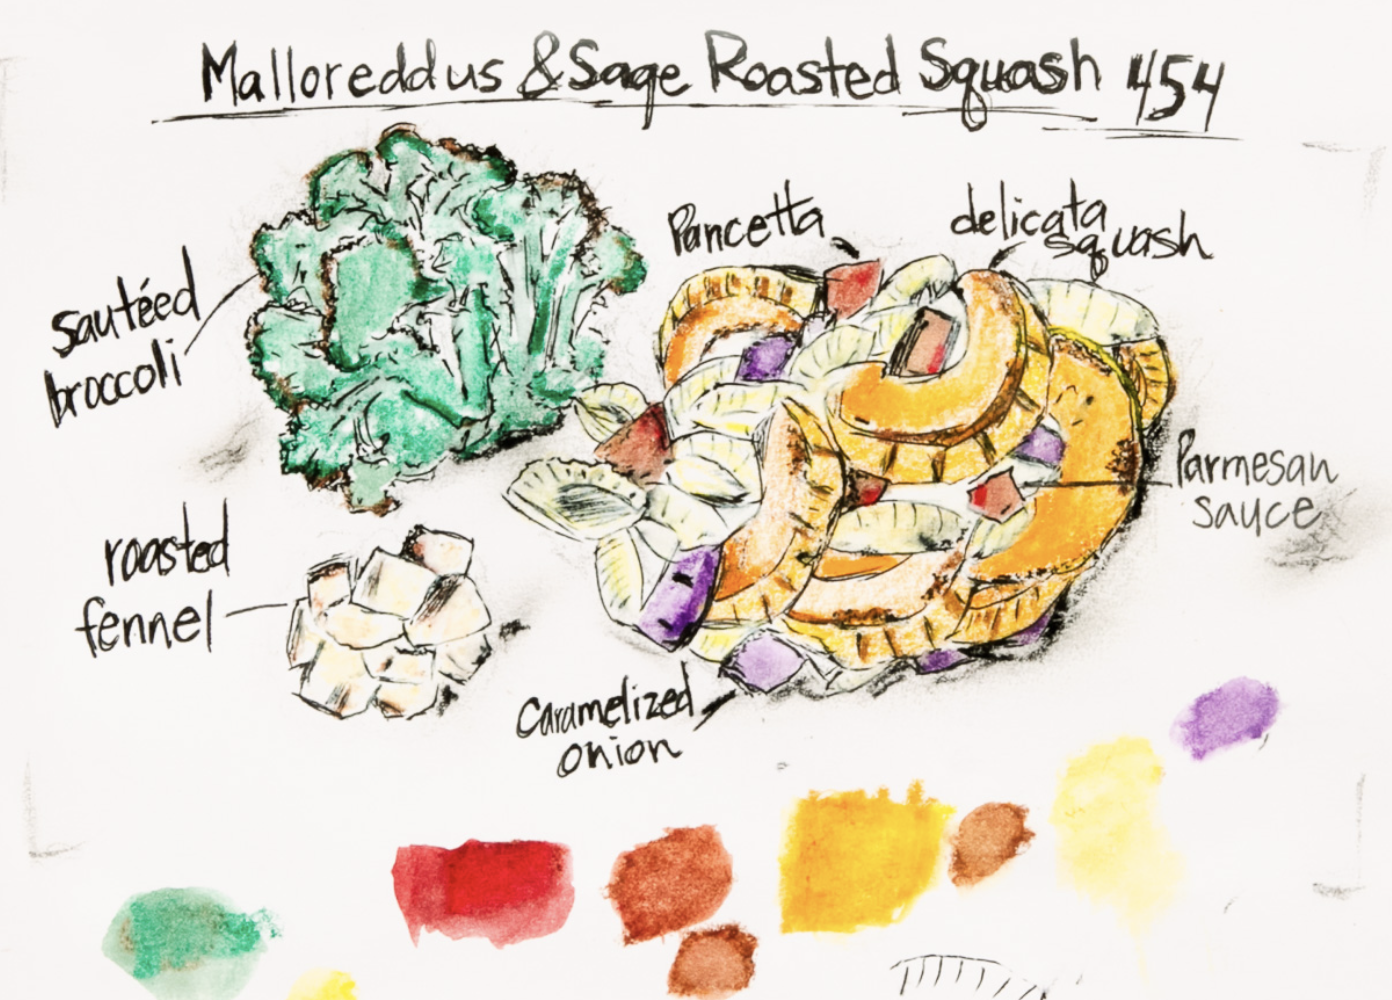 Malloreddus & Sage Roasted Squash 454
Pancetta
delicata
squash
sautéed
broccoli
Parmesan
sauce
roasted
fennel
Caramelized
onion